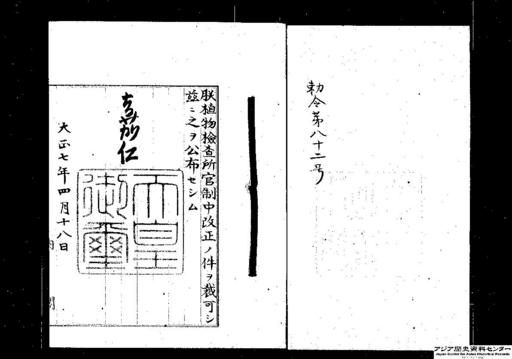 勅令第八十二号
朕植物檢査所官制中改正ノ件ヲ裁可シ
茲ニ之ヲ公布セシム
嘉仁
天皇御璽
大正七年四月十八日
内
アジア歴史資料センター
Japan Center for Asian Historical Records